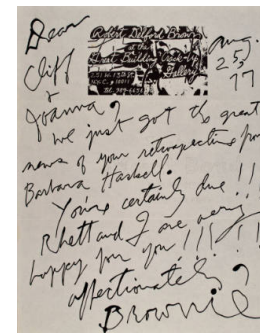 Dear
Cliff
&
Joanna,
Robert Delford Brown
at the
Great Building Crack-Up
Gallery
251 W. 13th St.
N.Y.C. 10011
Aug.
25,
77
we just got the great
news of your retrospective from
Barbara Haskell.
You're certainly due!!
Rhett and I are very
happy for you!!!!
affectionately,
Brownie